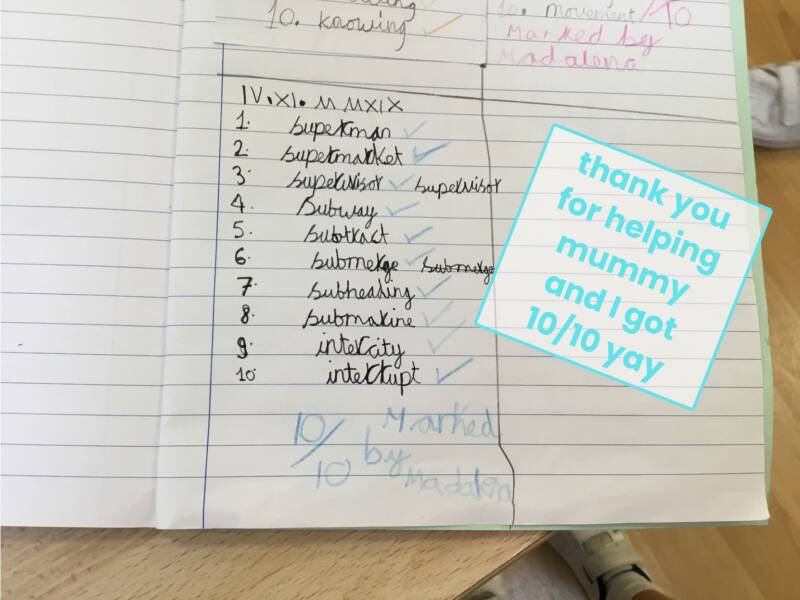 10. knowing
10. movement /10
Marked by
Madalena
IV.XI.MMXIX
1. superman
2. supermarket
3. supervisor supervisor
4. Subway
5. subtract
6. submerge submerge
7. subheading
8. submarine
9. intercity
10 interrupt
10/10
Marked
by
Madalen
thank you
for helping
mummy
and I got
10/10 yay